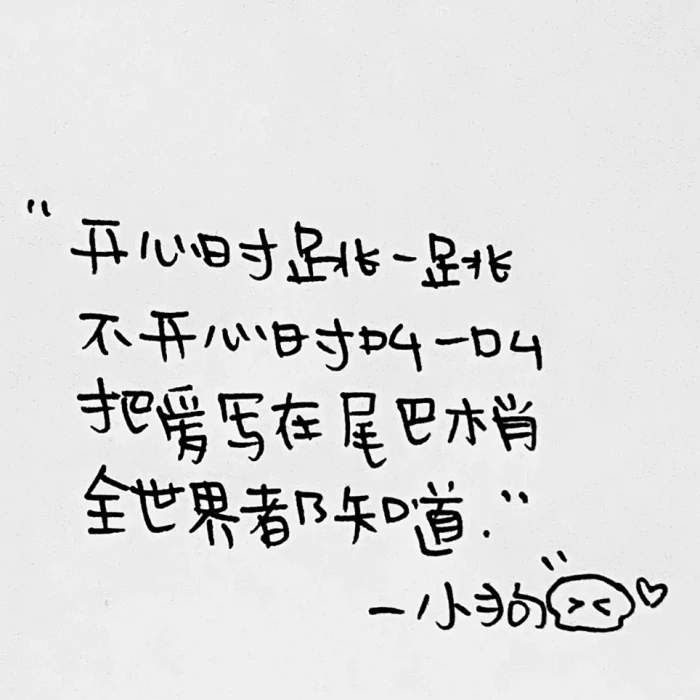 “开心时跳一跳
不开心时叫一叫
把爱写在尾巴梢
全世界都知道.”
—小狗